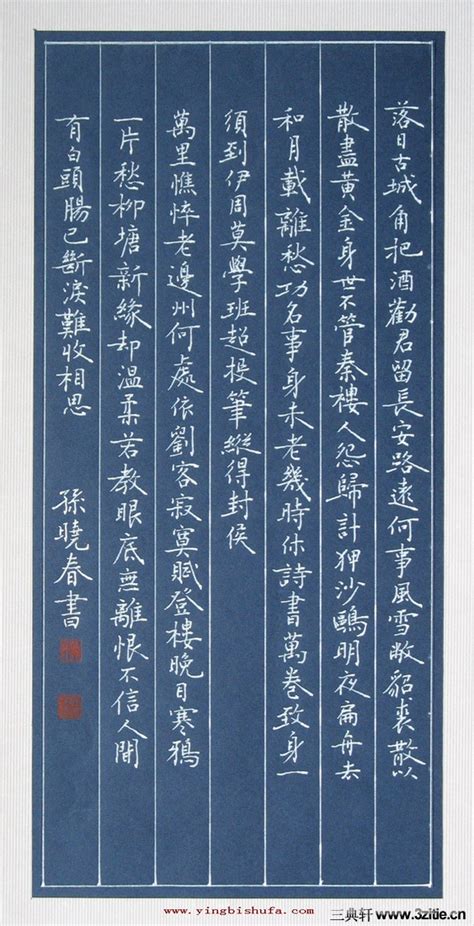 落日古城角把酒勸君留長安路遠何事風雪敝貂裘散以
散盡黃金身世不管秦樓人怨歸計狎沙鷗明夜扁舟去
和月載離愁功名事身未老幾時休詩書萬卷致身一
須到伊周莫學班超投筆縱得封侯
萬里憔悴老邊州何處依劉客寂寞賦登樓晚日寒鴉
一片愁柳塘新緣却溫柔若教眼底無離恨不信人間
有白頭腸已斷淚難收相思
孫曉春書
www.yingbishufa.com
三典轩 www.3zitie.cn